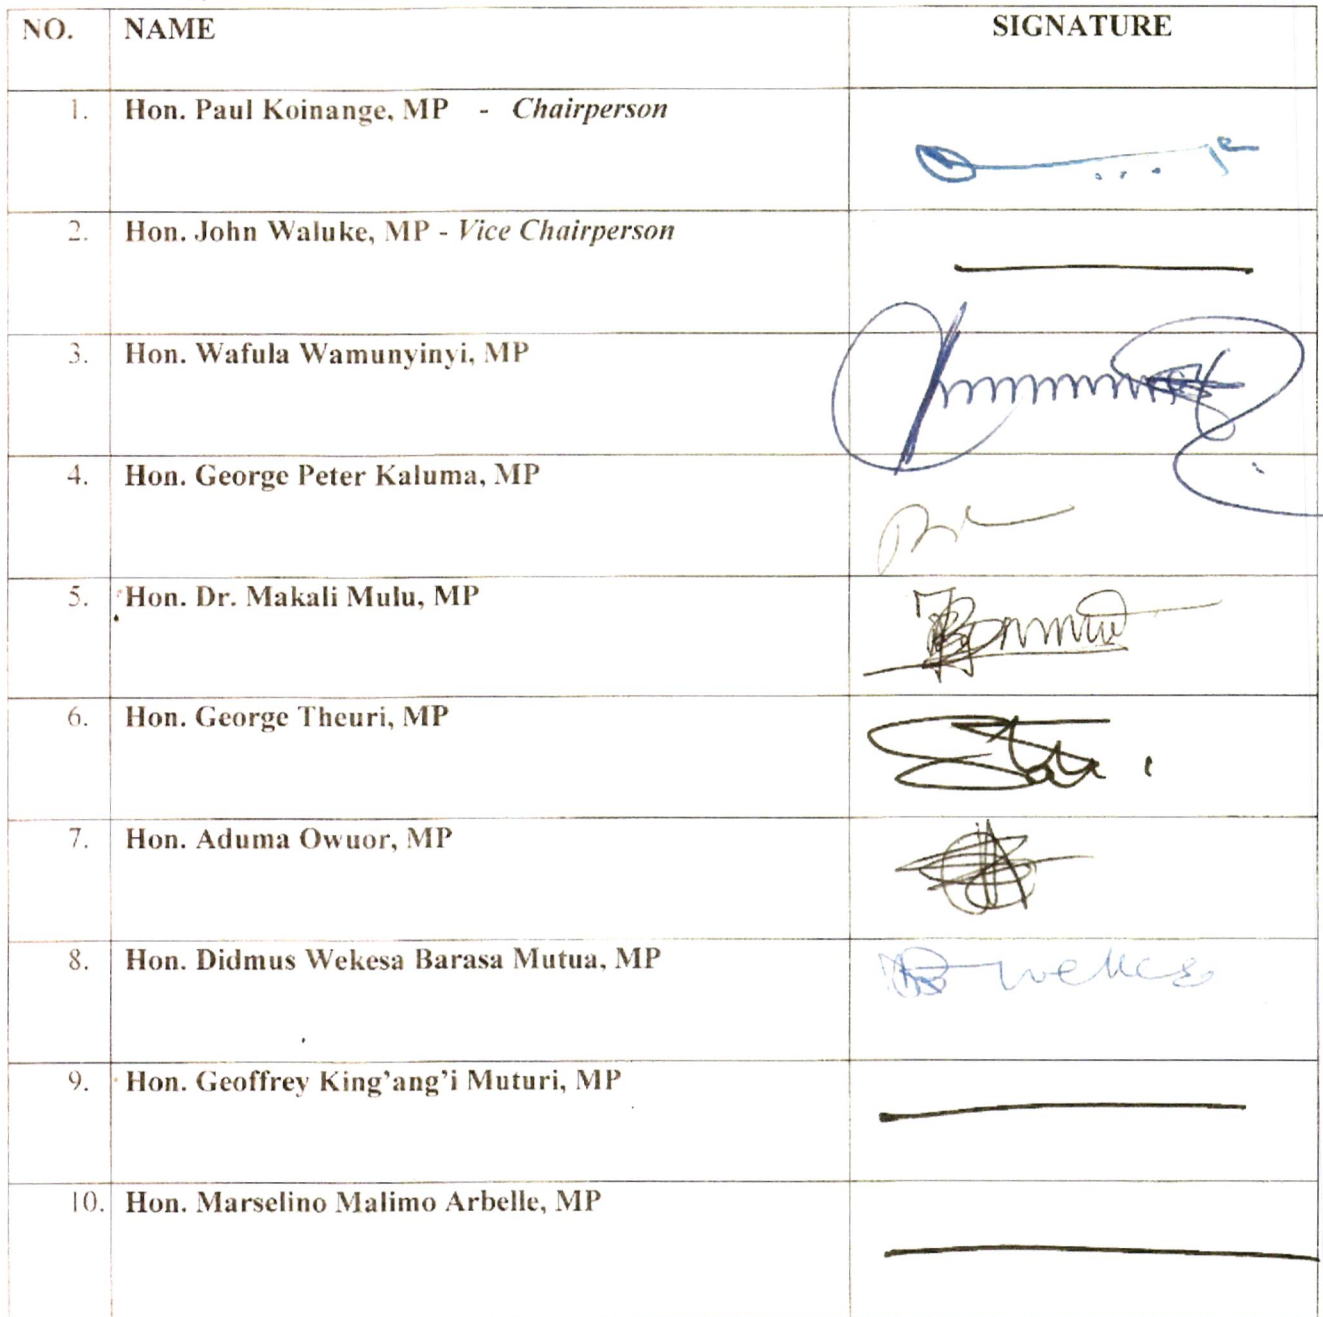 NO. NAME SIGNATURE
1. Hon. Paul Koinange, MP - Chairperson
2. Hon. John Waluke, MP - Vice Chairperson
3. Hon. Wafula Wamunyinyi, MP
4. Hon. George Peter Kaluma, MP
5. Hon. Dr. Makali Mulu, MP
6. Hon. George Theuri, MP
7. Hon. Aduma Owuor, MP
8. Hon. Didmus Wekesa Barasa Mutua, MP
9. Hon. Geoffrey King’ang’i Muturi, MP
10. Hon. Marselino Malimo Arbelle, MP